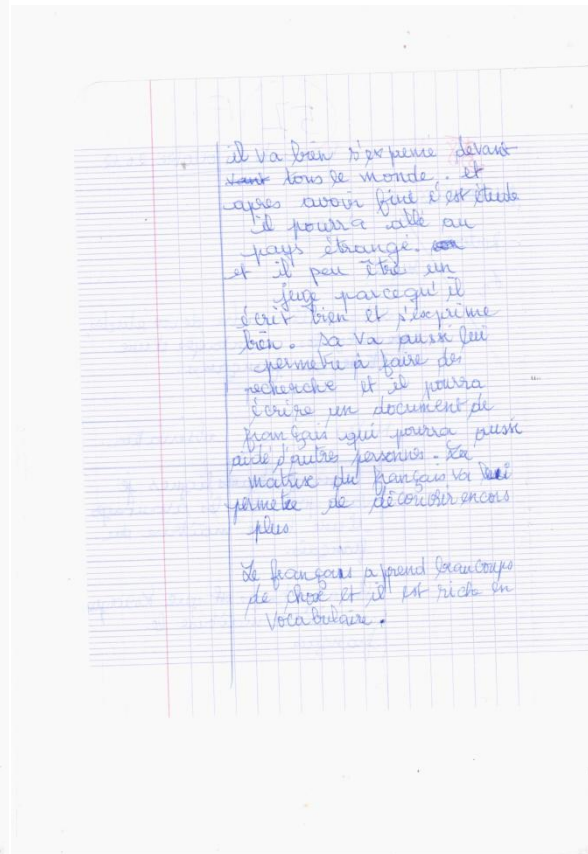 il va bien s'expreme devant
tous le monde. et
apres avoir finé c'est étude
il pourra allé au
pays étrangé.
et il peu être un
juge parcequ'il
écrit bien et s'exprime
bien. sa va aussi lui
permetre à faire des
recherche et il pourra
écrire un document de
français qui pourra aussi
aidé d'autres personnes. La
matrix du français va lui
permetre de découvrir encors
plus
Le français aprend beaucoups
de chose et il est riche en
vocabulaire.